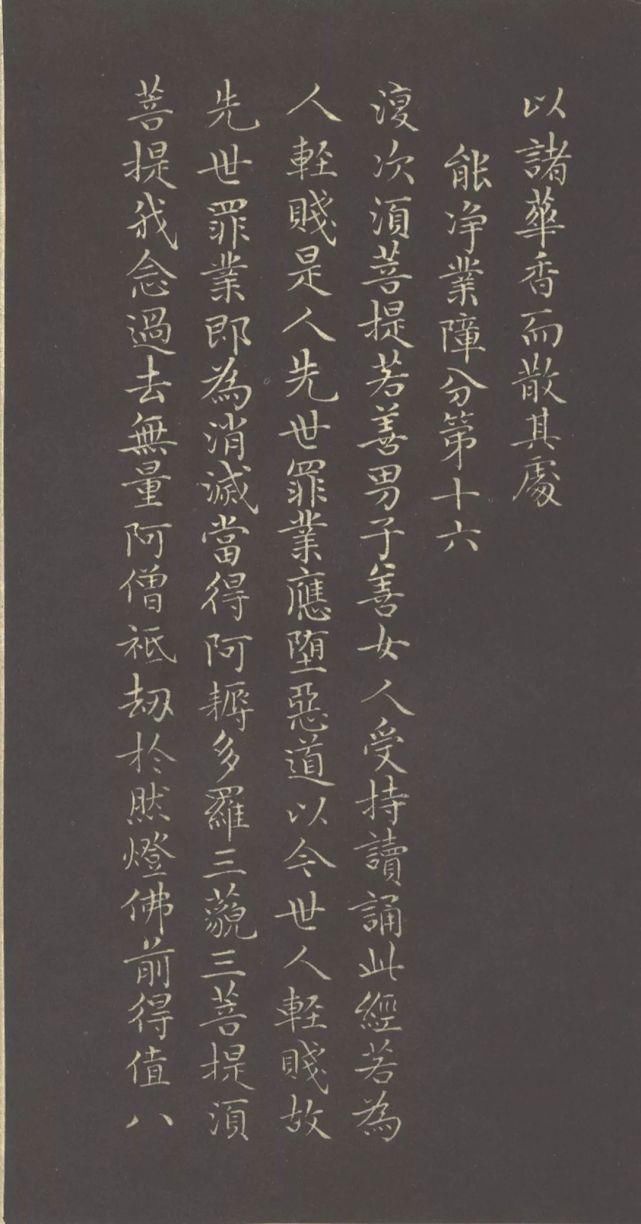 以諸華香而散其處
能净業障分第十六
復次須菩提若善男子善女人受持讀誦此經若為
人輕賤是人先世罪業應堕惡道以今世人輕賤故
先世罪業即為消滅當得阿耨多羅三藐三菩提須
菩提我念過去無量阿僧祇劫於然燈佛前得值八